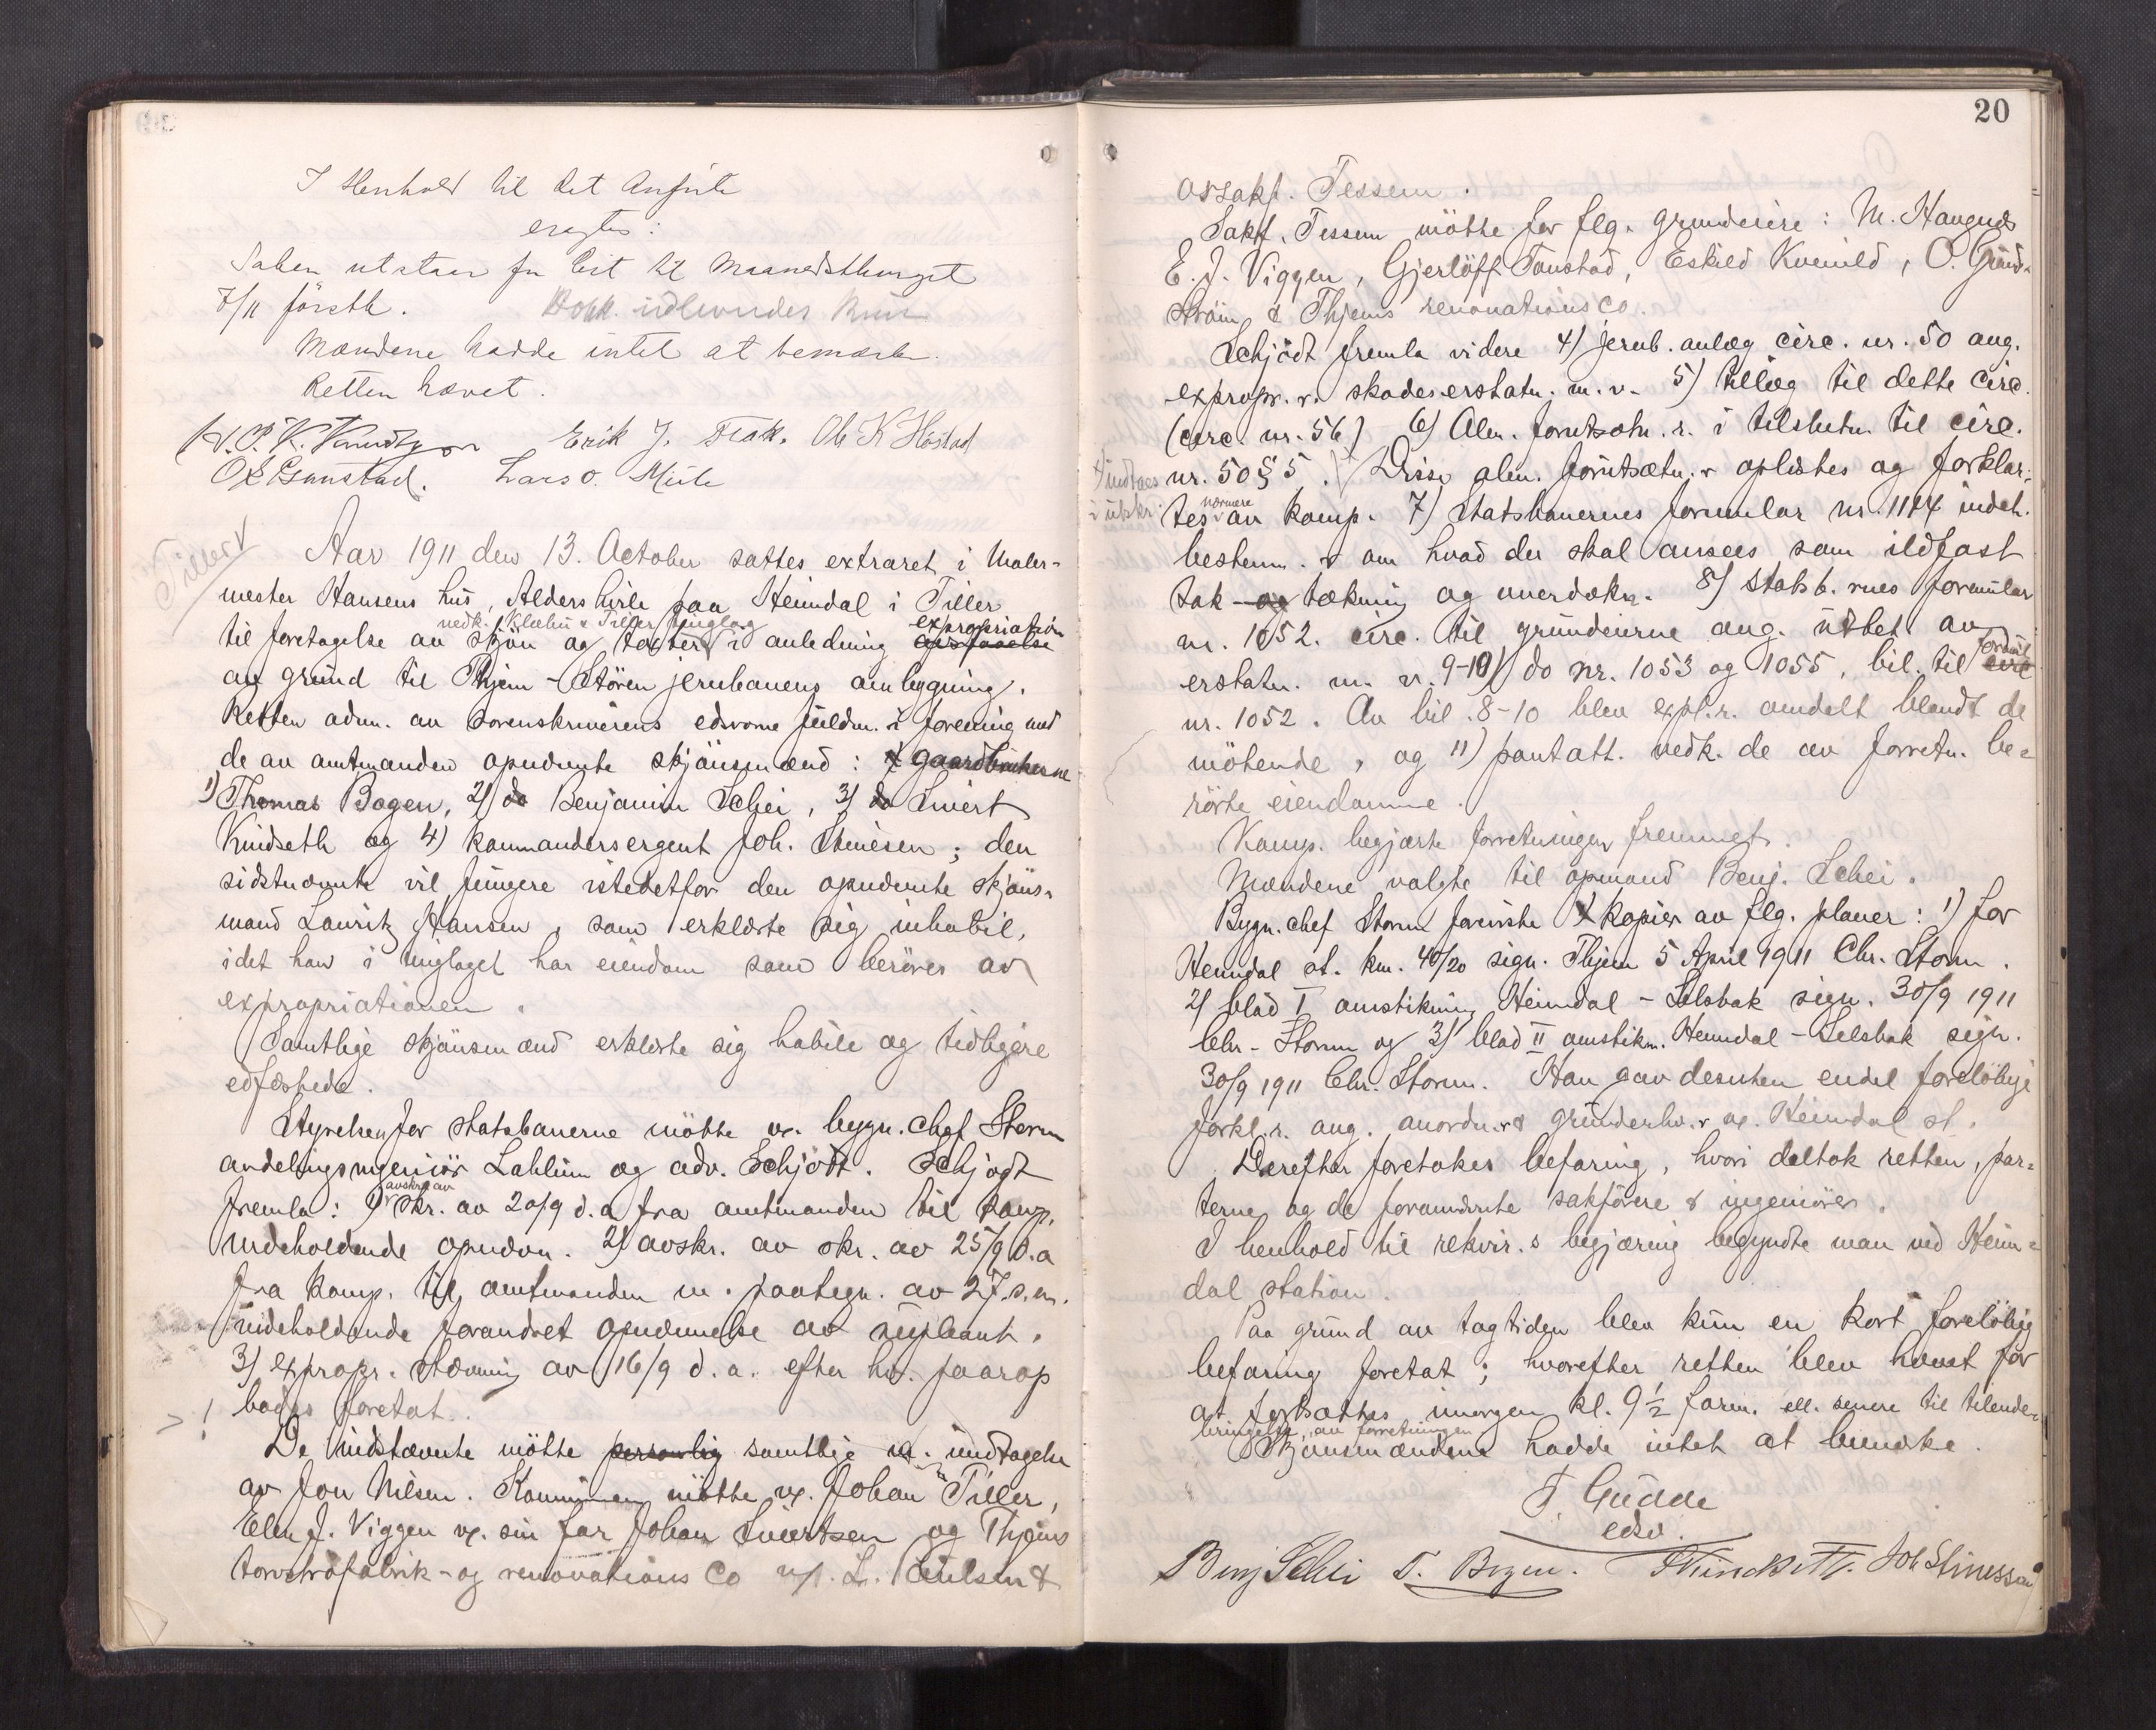 I Henhold til det Anførte
eragtes:
Saken utstaar for Ret til Maanedsthinget
7/11 førstk.
Mændene hadde intet at bemærke.
Retten hævet.
Erik J. Flak. Ole K Høstad
O E Gunstad. Lars O.
Tiller
Aar 1911 den 13. October sattes extraret i Maler-
mester Hansens hus, Aldershvile paa Heimdal i Tiller
vedk. Klæbu & Tiller tinglag expropriation
til foretagelse av skjøn og takster i anledning avstaaelse
av grund til Thjem-Støren jernbanens ombygning.
Retten adm. av sorenskriverens edsvorne fuldm. i forening med
de av amtmanden opnævnte skjønsmænd: gaardbrukerne
1) Thomas Bogen, 2) do Benjamin Schei, 3) do Sivert
Kuidseth og 4) kommandersergent Joh. Stinesen; den
sidstnævnte vil fungere istedetfor den opnævnte skjøns-
mand Lauritz Hansen, som erklærte sig inhabil,
idet han i tinglaget har eiendom som berøres av
expropriationen.
Samtlige skjønsmænd erklærte sig habile og tidligere
edfæstede.
Styrelsen for statsbanerne møtte v. bygn. chef Storm
avdelingsingeniør Lahlum og adv. Schjødt. Schjødt
avskr. av
fremla: 1) skr. av 20/9 d.a fra amtmanden til komp.
indeholdende opnævn. 2) avskr. av skr. av 25/9 d.a
fra komp. til amtmanden m. paategn. av 27. s.m.
indeholdende forandret opnævnelse av supleant.
3) expropr. stævning av 16/9 d.a. efter hv. paarop
! bades foretat.
De indstævnte møtte personlig samtlige m. undtagelse
av Jon Nilsen. Kommunen møtte v. Johan Tiller,
Elen J. Viggen v. sin far Johan Sivertsen og Thjems
torvstrøfabrik- og renovations Co v/. L. &
20
o.r.sakf. Tessem.
Sakf. Tessem møtte for flg. grundeiere: M. Haugnæs
E. J. Viggen, Gjerløff Tonstad, Eskild Kvenild, O. Grønd-
strøm & Thjems renovations Co.
Schjødt fremla videre 4) jernb. anlæg circ. nr. 50 ang.
expropr. r. skadeserstatn. m. v. 5) tillæg til dette circ.
(circ. nr. 56) 6) Alm. forutsetn. r. i tilslutn. til circ.
nr. 50 § 5. Disse alm. forutsætn. r oplæstes og forklar-
indtaes
i utskr.
nærmere
tes av komp. 7) Statsbanernes formular nr. 1174 indeh.
bestemm. r om hvad der skal ansees som ildfast
tak-og tækning og overdækn. 8) statsb. rnes formular
nr. 1052. circ. til grundeierne ang. utbet. av
erstatn. m. v. 9-10) do nr. 1053 og 1055, bil. til circ
formul
nr. 1052. Av bil. 8-10 blev expl. r. omdelt blandt de
møtende, og 11) pantatt. vedk. de av forretn. be-
rørte eiendomme.
Komp. begjærte forretningen fremmet.
Mændene valgte til opmand Benj. Schei.
Bygn. chef Storm foreviste kopier av flg. planer: 1) for
Heimdal st. km. 40/20 sign. Thjem 5 April 1911 Chr. Storm.
2) blad I omstikning Heimdal - Selsbak sign. 30/9 1911
Chr. Storm og 3) blad II omstikn. Heimdal - Selsbak sign.
30/9 1911 Chr. Storm. Han gav desuten endel foreløbige
forkl. r. ang. anordn. r & grunderhv. r v. Heimdal st.
Derefter foretokes befaring, hvori deltok retten, par-
terne og de forannævnte sakførere & ingeniører.
I henhold til rekvir. s begjæring begyndte man ved Heim-
dal station.
Paa grund av togtiden blev kun en kort foreløbig
befaring foretat; hvorefter retten blev hævet for
at fortsættes imorgen kl. 9 1/2 form. ell. senere til tilende-
bringelse av forretningen
Skjønsmændene hadde intet at bemærke.
T. Gudde
edsv.
Benj Schei T. Bogen. Joh Stinessen